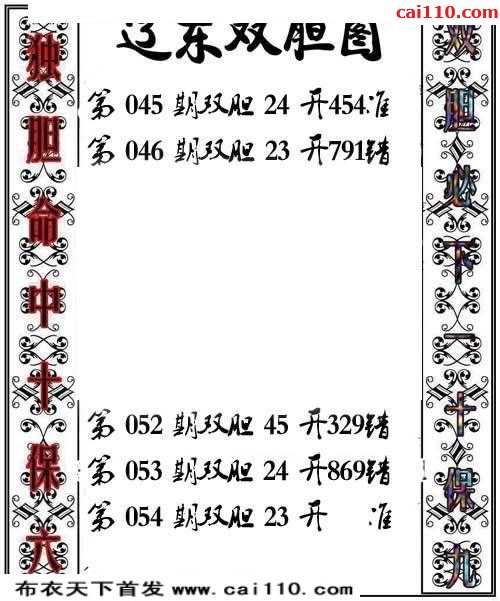 cai110.com
辽东双胆图
独胆命中十保六
第 045 期双胆 24 开454准
第 046 期双胆 23 开791错
第 052 期双胆 45 开329错
第 053 期双胆 24 开869错
第 054 期双胆 23 开 准
双胆必下一十保九
布衣天下首发 www.cai110.com